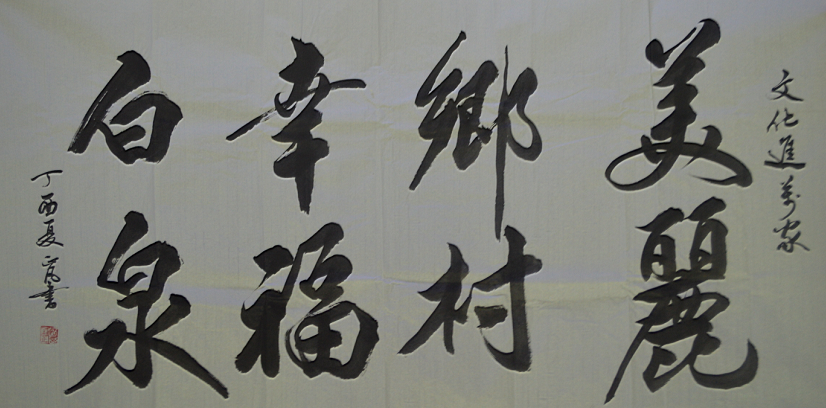 文化進萬家
美麗
鄉村
幸福
白泉
丁酉夏
書